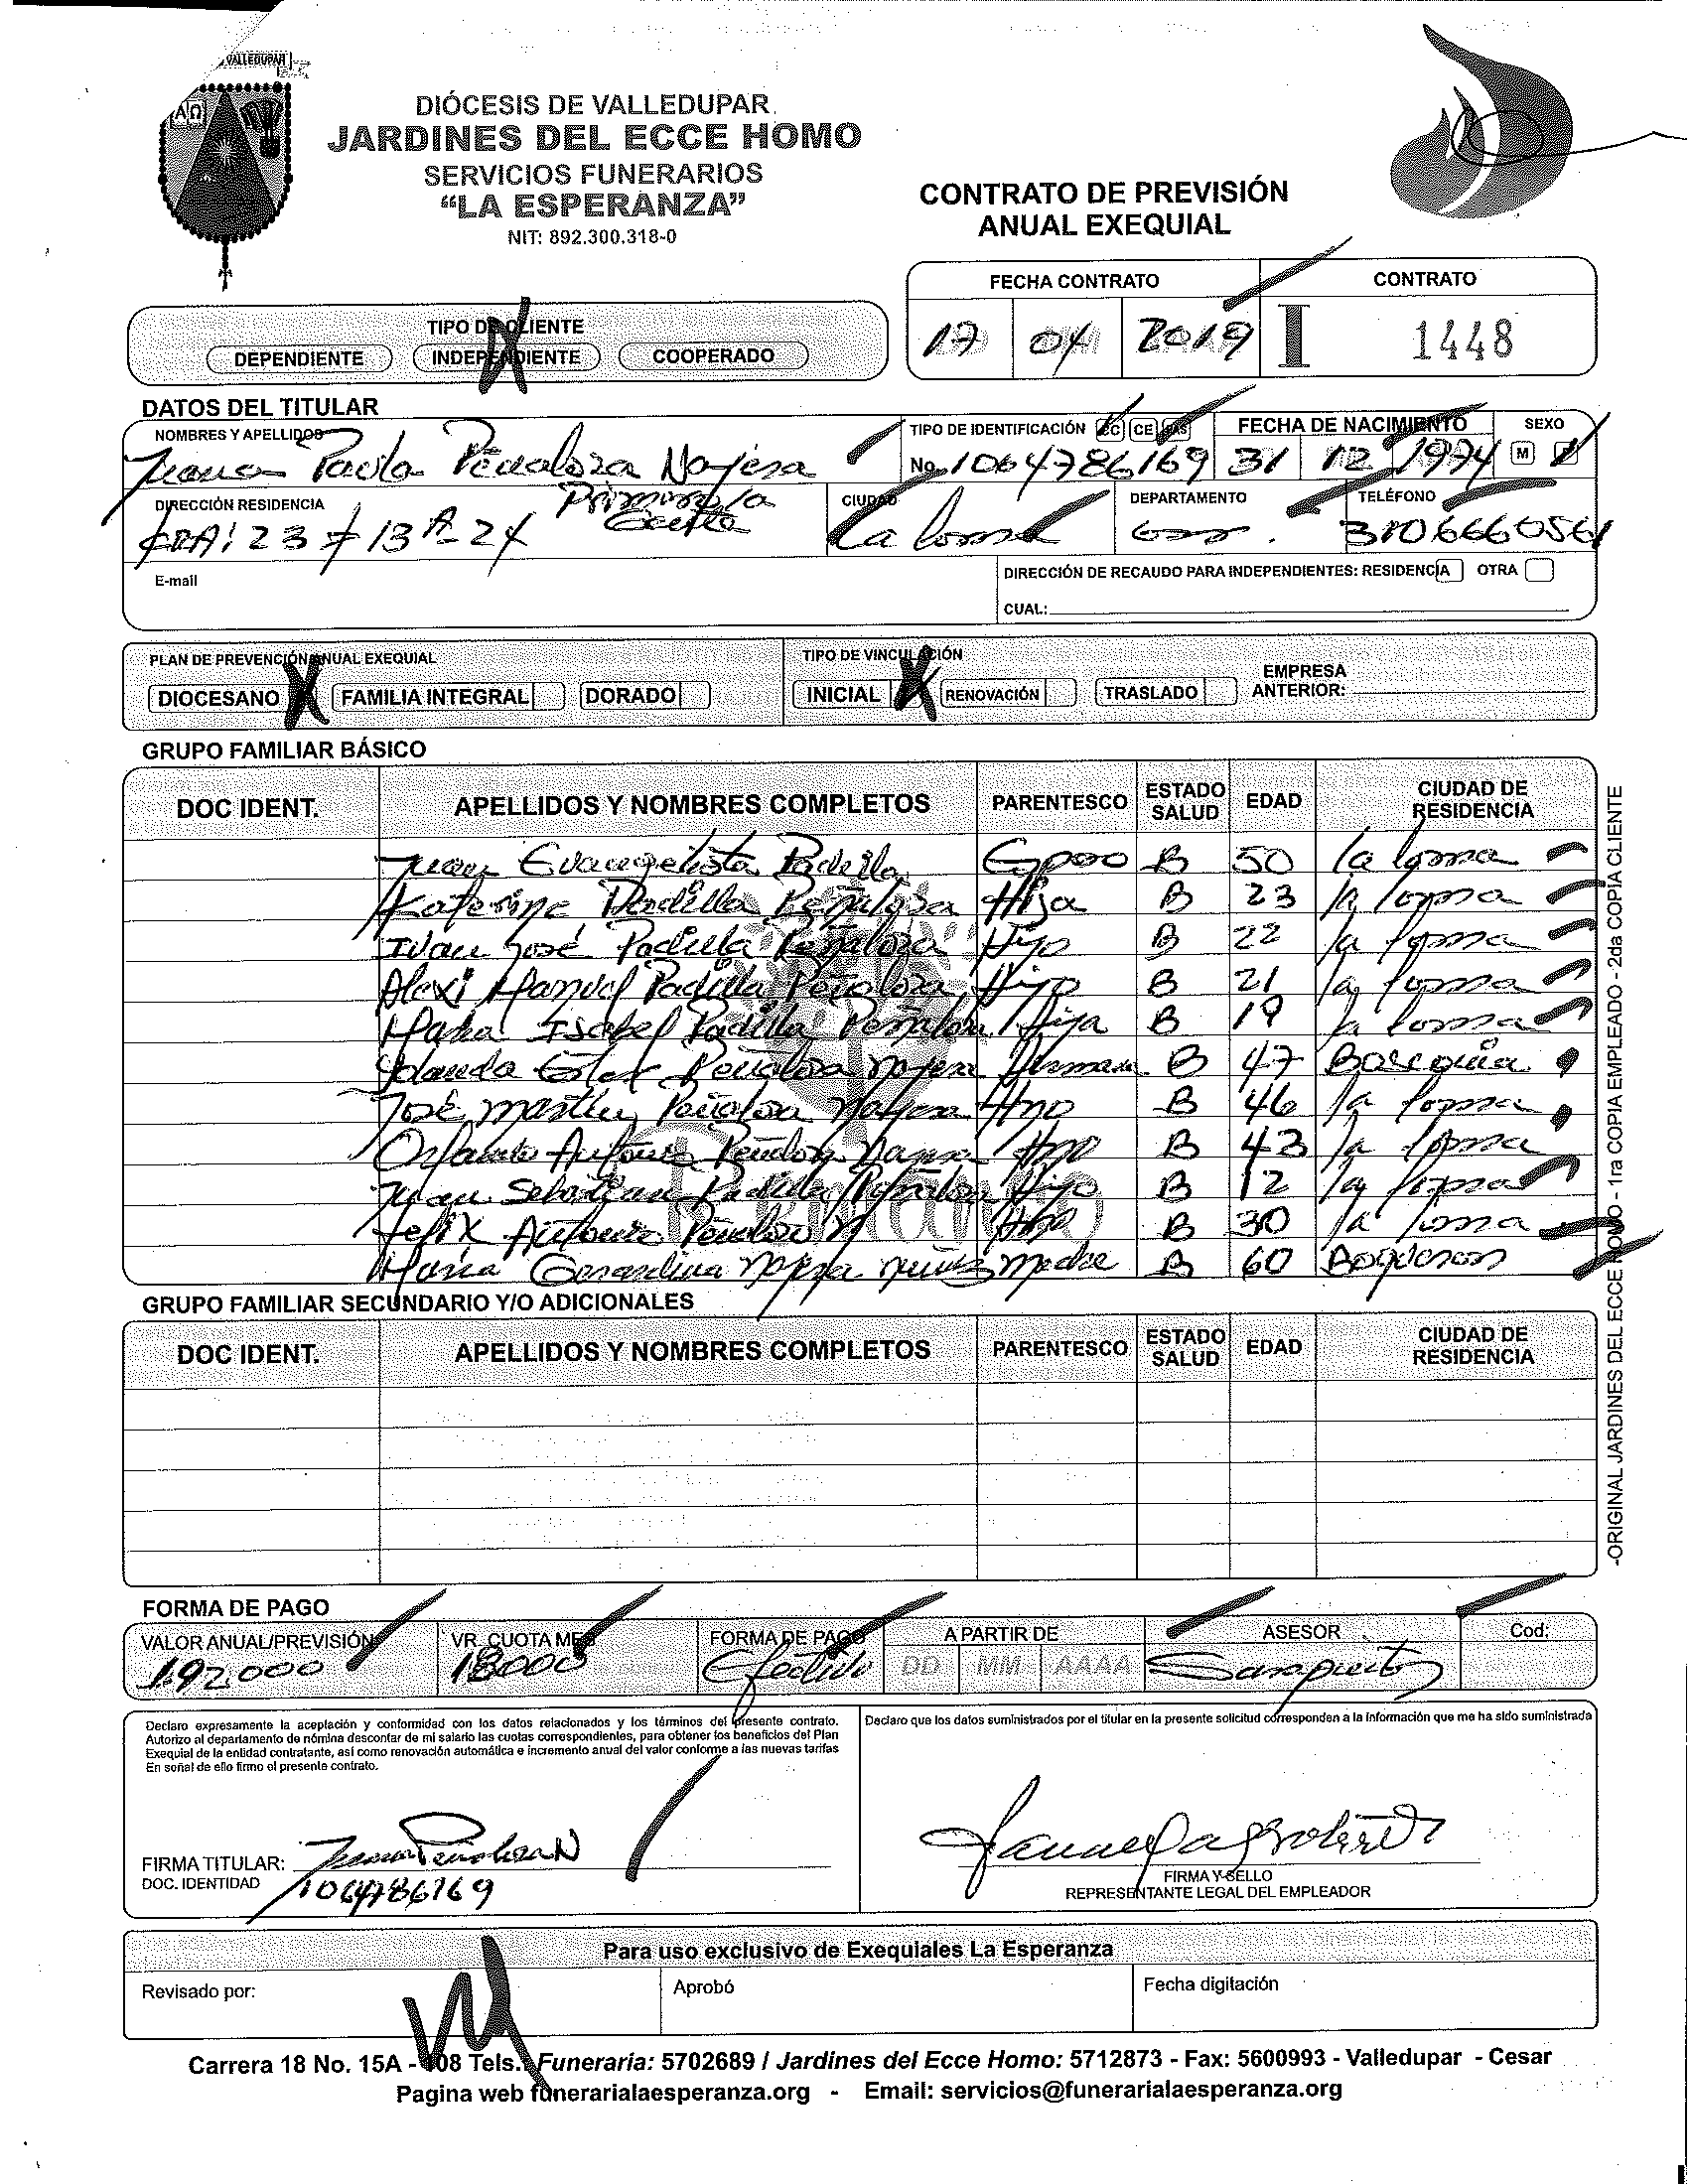 VALLEDUPAR
DIÓCESIS DE VALLEDUPAR
JARDINES DEL ECCE HOMO
SERVICIOS FUNERARIOS
“LA ESPERANZA”
NIT: 892.300.318-0
CONTRATO DE PREVISIÓN
ANUAL EXEQUIAL
FECHA CONTRATO CONTRATO
17 04 2019 I 1448
TIPO DE CLIENTE
DEPENDIENTE INDEPENDIENTE COOPERADO
DATOS DEL TITULAR
NOMBRES Y APELLIDOS TIPO DE IDENTIFICACIÓN CC CE PAS FECHA DE NACIMIENTO SEXO
Juana Paola Peñaloza Najera No. 1064786169 31 12 1974 M F
DIRECCIÓN RESIDENCIA CIUDAD DEPARTAMENTO TELÉFONO
CRA: 23 # 13 A-24 La loma 3106660561
E-mail DIRECCIÓN DE RECAUDO PARA INDEPENDIENTES: RESIDENCIA OTRA
CUAL:
PLAN DE PREVENCIÓN ANUAL EXEQUIAL TIPO DE VINCULACIÓN
DIOCESANO X FAMILIA INTEGRAL DORADO INICIAL X RENOVACIÓN TRASLADO EMPRESA ANTERIOR:
GRUPO FAMILIAR BÁSICO
DOC IDENT. APELLIDOS Y NOMBRES COMPLETOS PARENTESCO ESTADO SALUD EDAD CIUDAD DE RESIDENCIA
Juan Evangelista Padilla Esposo B 50 la loma
Katerine Padilla Peñaloza Hija B 23 la loma
Ivan José Padilla Peñaloza Hijo B 22 la loma
Alexi Manuel Padilla Peñaloza Hijo B 21 la loma
Maria Isabel Padilla Peñaloza Hija B 19 la loma
Yolanda Ester Peñaloza Najera Hermana B 47
José Peñaloza Najera Hno B 46 la loma
Orlando Antonio Peñaloza Najera Hno B 43 la loma
Juan Sebastian Padilla Peñaloza Hijo B 12 la loma
Felix Antonio Peñaloza N Hno B 30 la loma
Maria Najera Nuñez Madre B 60
GRUPO FAMILIAR SECUNDARIO Y/O ADICIONALES
DOC IDENT. APELLIDOS Y NOMBRES COMPLETOS PARENTESCO ESTADO SALUD EDAD CIUDAD DE RESIDENCIA
-ORIGINAL JARDINES DEL ECCE HOMO - 1ra COPIA EMPLEADO - 2da COPIA CLIENTE
FORMA DE PAGO
VALOR ANUAL/PREVISIÓN VR. CUOTA MES FORMA DE PAGO A PARTIR DE ASESOR Cod:
192.000 18000 Efectivo DD MM AAAA
Declaro expresamente la aceptación y conformidad con los datos relacionados y los términos del presente contrato.
Autorizo al departamento de nómina descontar de mi salario las cuotas correspondientes, para obtener los beneficios del Plan
Exequial de la entidad contratante, así como renovación automática e incremento anual del valor conforme a las nuevas tarifas
En señal de ello firmo el presente contrato.
Declaro que los datos suministrados por el titular en la presente solicitud corresponden a la información que me ha sido suministrada
FIRMA TITULAR: Juana Peñaloza N
DOC. IDENTIDAD 1064786169
FIRMA Y SELLO
REPRESENTANTE LEGAL DEL EMPLEADOR
Para uso exclusivo de Exequiales La Esperanza
Revisado por: Aprobó Fecha digitación
Carrera 18 No. 15A - 108 Tels. Funeraria: 5702689 / Jardines del Ecce Homo: 5712873 - Fax: 5600993 - Valledupar - Cesar
Pagina web funerarialaesperanza.org - Email: servicios@funerarialaesperanza.org